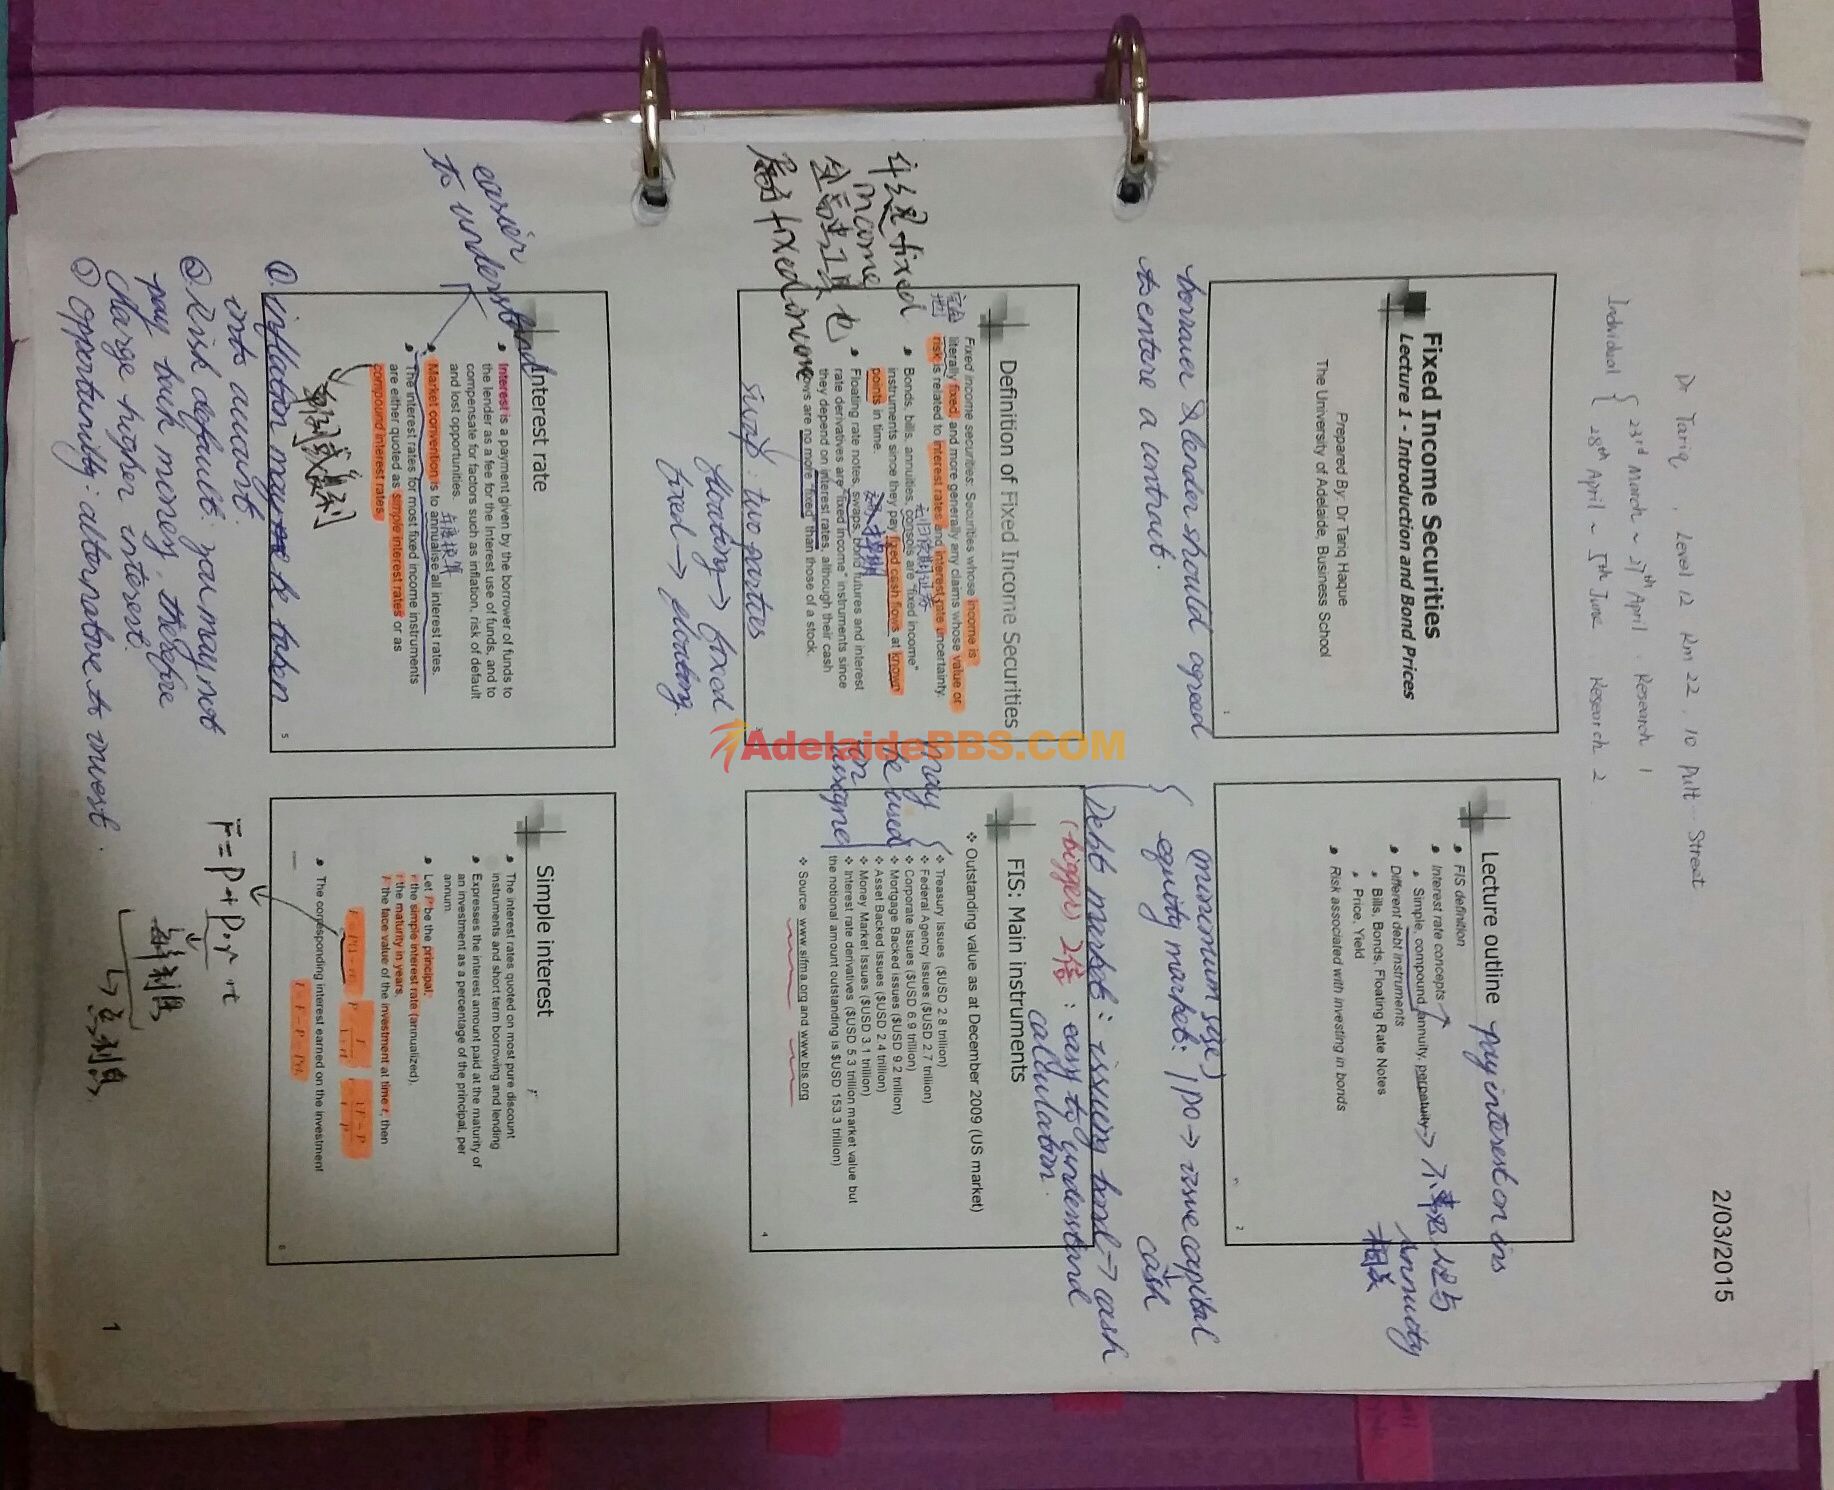 2/03/2015
Dr Tariq, Level 12 Rm 22, 10 Pult Street
Individual { 23rd March ~ 27th April Research 1
28th April ~ 5th June Research 2
Fixed Income Securities
Lecture 1 - Introduction and Bond Prices
Prepared By: Dr Tariq Haque
The University of Adelaide, Business School
1
borrower & lender should agreed
to enture a contract.
Lecture outline
pay interest on ins
• FIS definition
• Interest rate concepts
• Simple, compound, annuity, perpetuity
annuity
相反
• Different debt instruments
• Bills, Bonds, Floating Rate Notes
• Price, Yield
• Risk associated with investing in bonds
2
(minimum size)
equity market: IPO → issue capital
cash
Debt market: issuing bond → cash
(bigger) 2倍: easy to understand
callulation.
Definition of Fixed Income Securities
Fixed income securities: Securities whose income is
literally fixed, and more generally any claims whose value or
risk is related to interest rates and interest rate uncertainty.
• Bonds, bills, annuities, consols are "fixed income"
instruments since they pay fixed cash flows at known
points in time.
• Floating rate notes, swaps, bond futures and interest
rate derivatives are "fixed income" instruments since
they depend on interest rates, although their cash
flows are no more "fixed" than those of a stock.
fixed
income
fixed income
swap: two parties
floating → fixed
fixed → floating.
FIS: Main instruments
❖ Outstanding value as at December 2009 (US market)
❖ Treasury Issues ($USD 2.8 trillion)
❖ Federal Agency Issues ($USD 2.7 trillion)
❖ Corporate Issues ($USD 6.9 trillion)
❖ Mortgage Backed Issues ($USD 9.2 trillion)
❖ Asset Backed Issues ($USD 2.4 trillion)
❖ Money Market Issues ($USD 3.1 trillion)
❖ Interest rate derivatives ($USD 5.3 trillion market value but
the notional amount outstanding is $USD 153.3 trillion)
❖ Source www.sifma.org and www.bis.org
4
may
be used
on
assigned
AdelaideBBS.COM
Interest rate
• Interest is a payment given by the borrower of funds to
the lender as a fee for the Interest use of funds, and to
compensate for factors such as inflation, risk of default
and lost opportunities.
• Market convention is to annualise all interest rates.
• The interest rates for most fixed income instruments
are either quoted as simple interest rates or as
compound interest rates.
5
easier
to understand
单利或复利
① inflation may be taken
into account.
② risk default: you may not
pay back money, therefore
charge higher interest.
③ opportunity: alternative to invest.
Simple interest
• The interest rates quoted on most pure discount
instruments and short term borrowing and lending
• Expresses the interest amount paid at the maturity of
an investment as a percentage of the principal, per
annum.
• Let P be the principal,
r the simple interest rate (annualized),
t the maturity in years,
F the face value of the investment at time t, then
• The corresponding interest earned on the investment
I = F - P = Prt
6
F = P + P·r·t
1